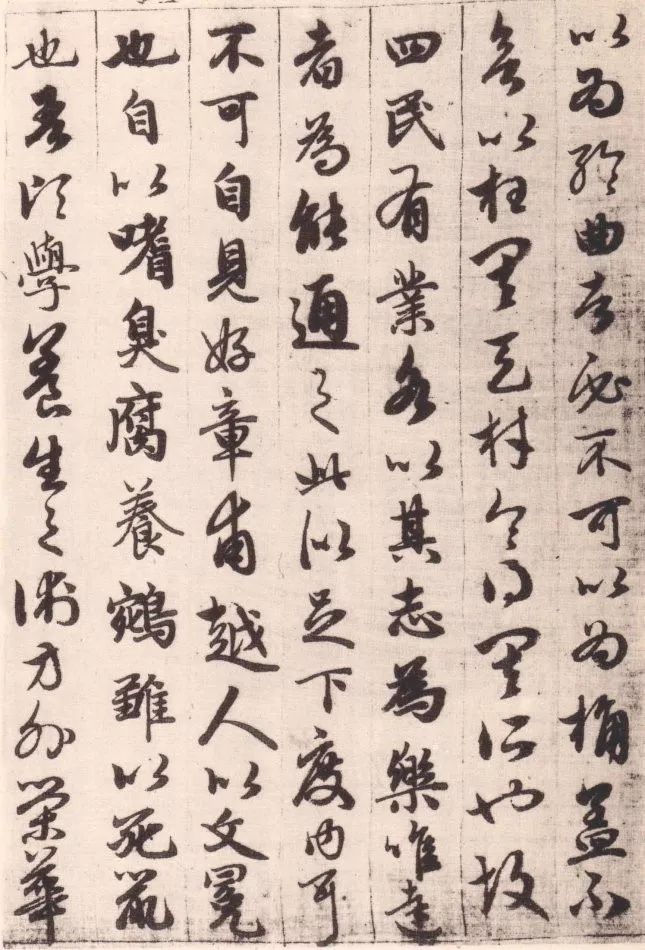 以為輪曲者必不可以為桷蓋不
以枉其天材令得其所也故
四民有業各以其志為樂唯達
者為能通之此似足下度內耳
不可自見好章甫越人以文冕
也自以嗜臭腐養鵷雛以死鼠
也吾頃學養生之術方外榮華